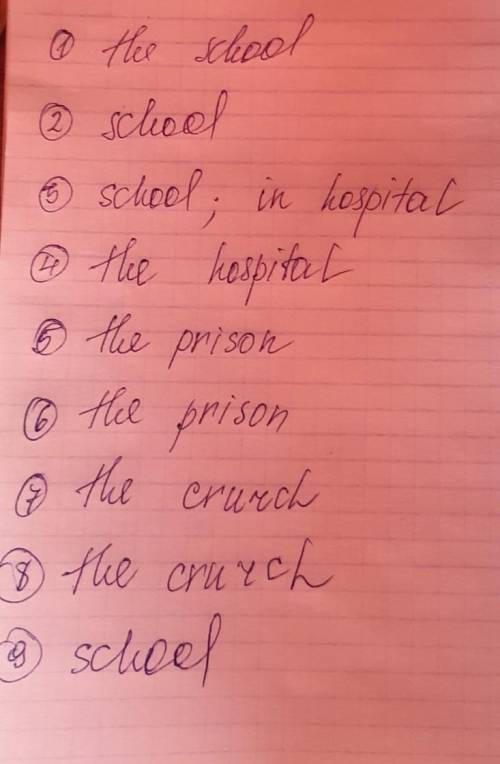 ① the school
② school
③ school; in hospital
④ the hospital
⑤ the prison
⑥ the prison
⑦ the crurch
⑧ the crurch
⑨ school